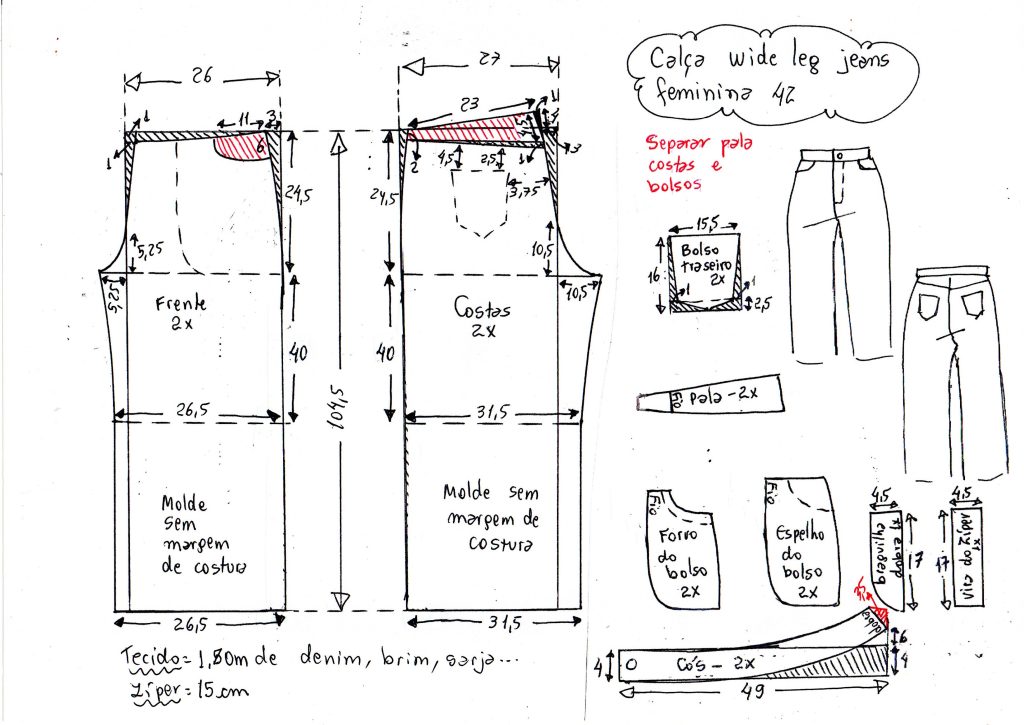 Calça wide leg jeans
feminina 42
Separar pala
costas e
bolsos
26
1
11
3
6
1
24,5
5,25
5,25
Frente
2x
40
26,5
Molde
sem
margem
de costura
26,5
104,5
27
23
1
3
2
4,5
2,5
1
3,75
24,5
10,5
10,5
Costas
2x
40
31,5
Molde sem
margem de
costura
31,5
15,5
Bolso
traseiro
2x
16
1
1
2,5
Fio
pala - 2x
Fio
Forro
do
bolso
2x
Fio
Espelho
do
bolso
2x
4,5
braguilha
dobra 1x
17
4,5
Vira do Zíper
1x
17
dobra
6
4
Cós - 2x
4
49
Tecido = 1,80m de denim, brim, sarja...
Zíper = 15cm